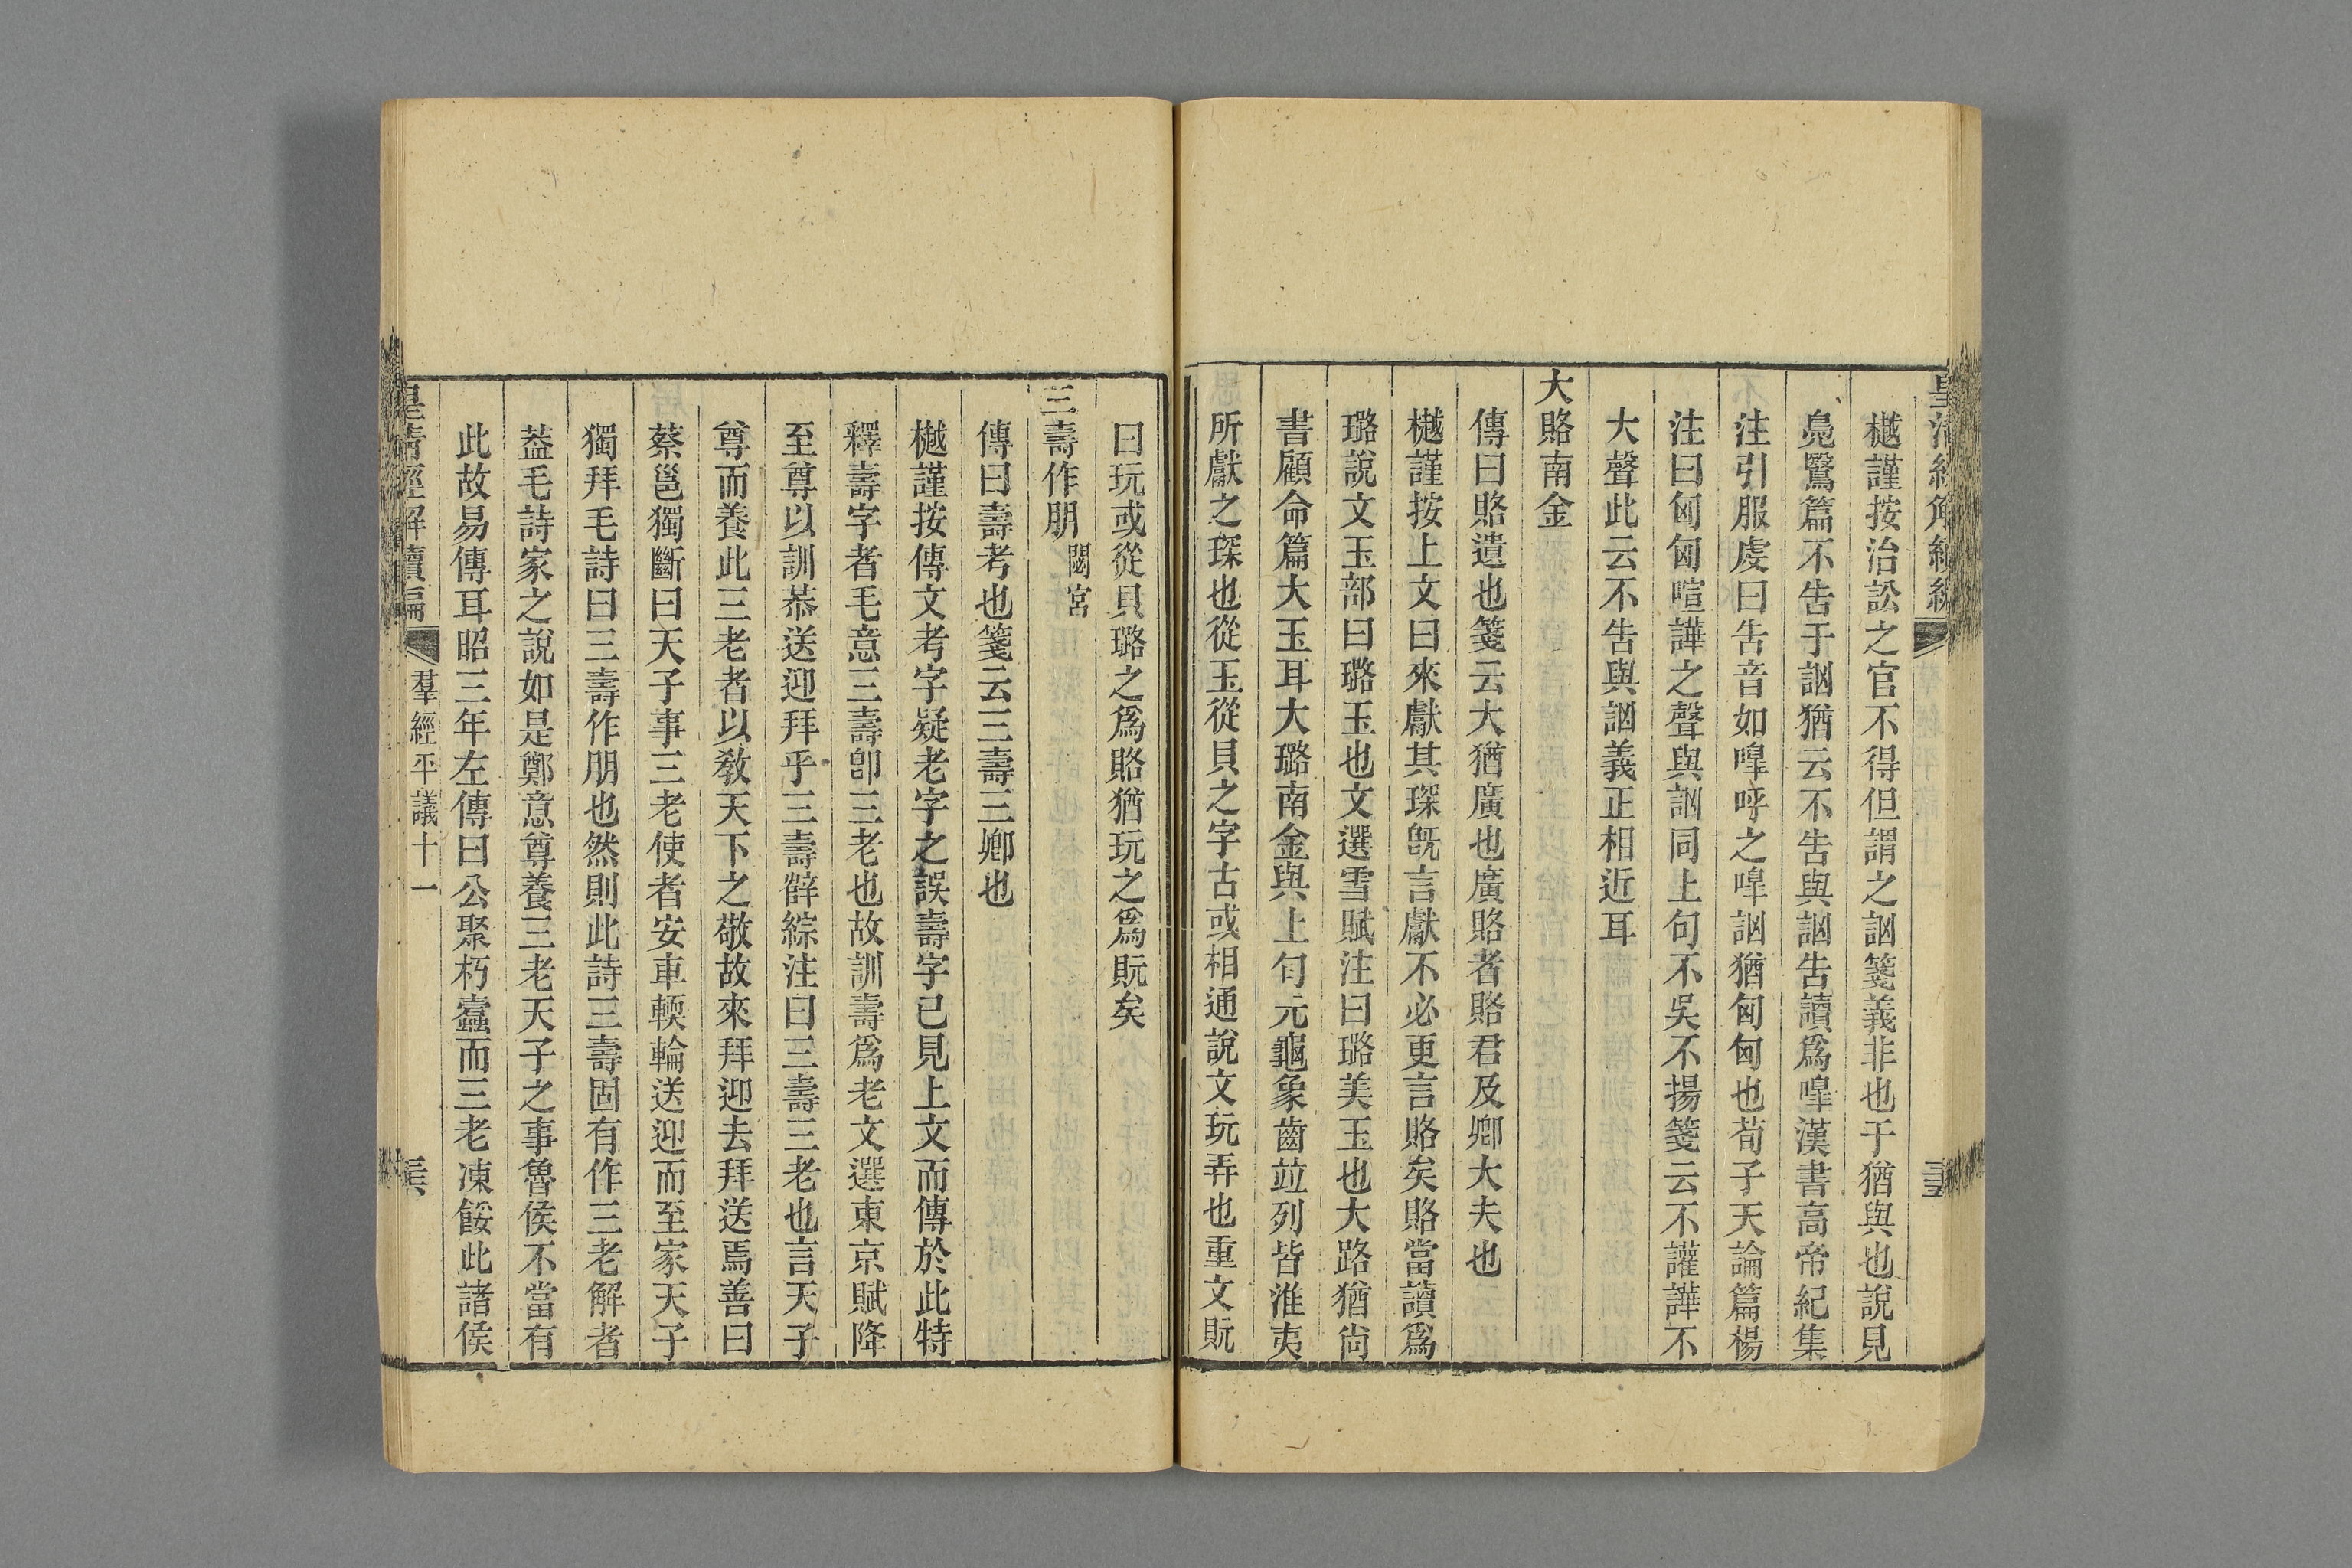 樾謹按治訟之官不得但謂之訩箋義非也于猶與也說見
鳧鷖篇不告于訩猶云不告與訩告讀爲嘷漢書高帝紀集
注引服虔曰告音如嘷呼之嘷訩猶匈匈也荀子天論篇楊
注曰匈匈喧譁之聲與訩同上句不吳不揚箋云不讙譁不
大聲此云不告與訩義正相近耳
大賂南金
傳曰賂遺也箋云大猶廣也廣賂者賂君及卿大夫也
樾謹按上文曰來獻其琛旣言獻不必更言賂矣賂當讀爲
璐說文玉部曰璐玉也文選雪賦注曰璐美玉也大路猶尙
書顧命篇大玉耳大璐南金與上句元龜象齒竝列皆淮夷
所獻之琛也從玉從貝之字古或相通說文玩弄也重文貦
曰玩或從貝璐之爲賂猶玩之爲貦矣
三壽作朋 閟宮
傳曰壽考也箋云三壽三卿也
樾謹按傳文考字疑老字之誤壽字已見上文而傳於此特
釋壽字者毛意三壽卽三老也故訓壽爲老文選東京賦降
至尊以訓恭送迎拜乎三壽薛綜注曰三壽三老也言天子
尊而養此三老者以敎天下之敬故來拜迎去拜送焉善曰
蔡邕獨斷曰天子事三老使者安車輭輪送迎而至家天子
獨拜毛詩曰三壽作朋也然則此詩三壽固有作三老解者
葢毛詩家之說如是鄭意尊養三老天子之事魯侯不當有
此故易傳耳昭三年左傳曰公聚朽蠹而三老凍餒此諸侯
皇清經解續編 羣經平議十一